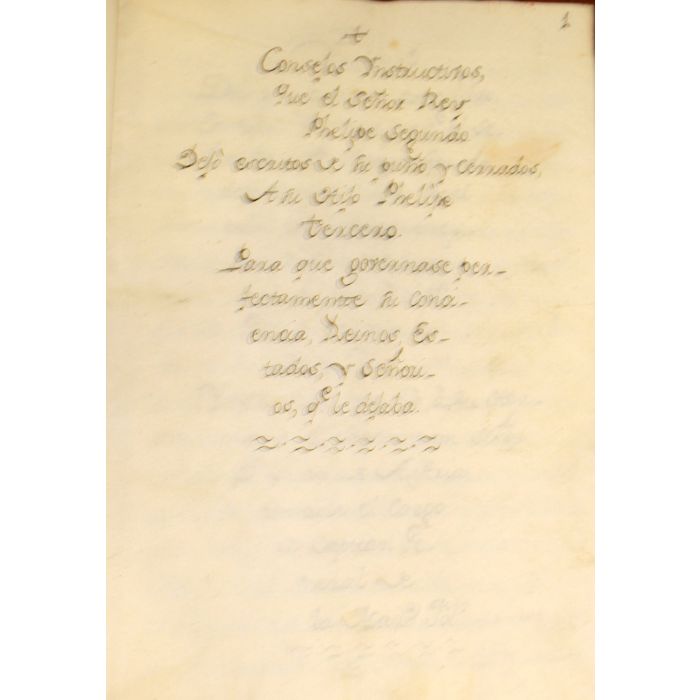 1
+
Consejos Ynstructivos,
que el Señor Rey
Phelipe Segundo
Dejò escritos de su puño y cerrados,
A su Hijo Phelipe
tercero.
Para que governase per-
fectamente su conci-
encia, Reinos, Es-
tados, y Señori-
os, qe le dejaba.